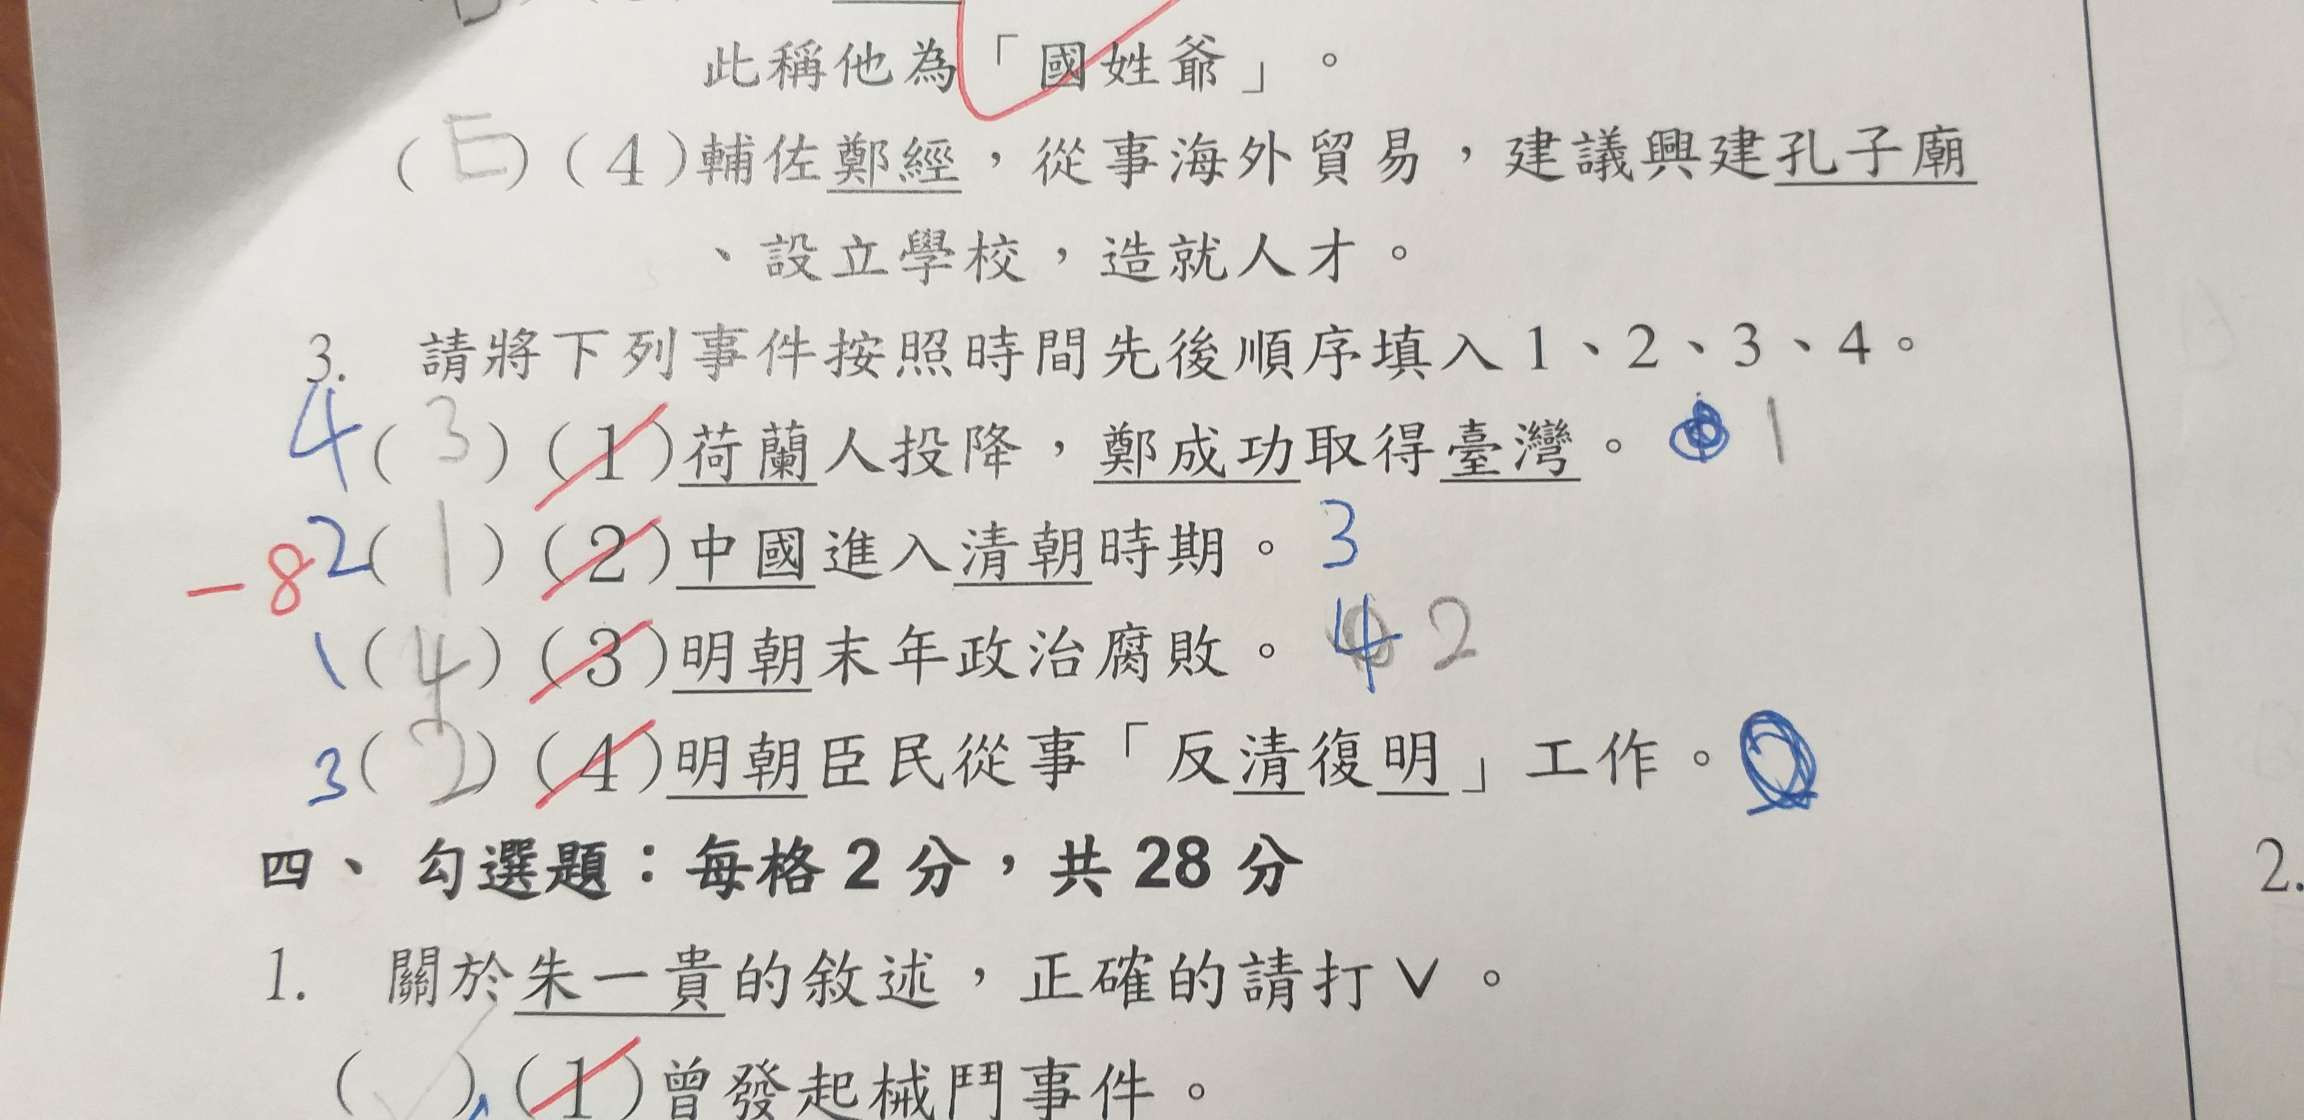 此稱他為「國姓爺」。
(E)(4)輔佐鄭經，從事海外貿易，建議興建孔子廟
、設立學校，造就人才。
3. 請將下列事件按照時間先後順序填入1、2、3、4。
4(3)(1)荷蘭人投降，鄭成功取得臺灣。1
-8 2(1)(2)中國進入清朝時期。3
1(4)(3)明朝末年政治腐敗。4 2
3(2)(4)明朝臣民從事「反清復明」工作。
四、勾選題：每格2分，共28分
1. 關於朱一貴的敘述，正確的請打V。
( )(1)曾發起械鬥事件。
2.